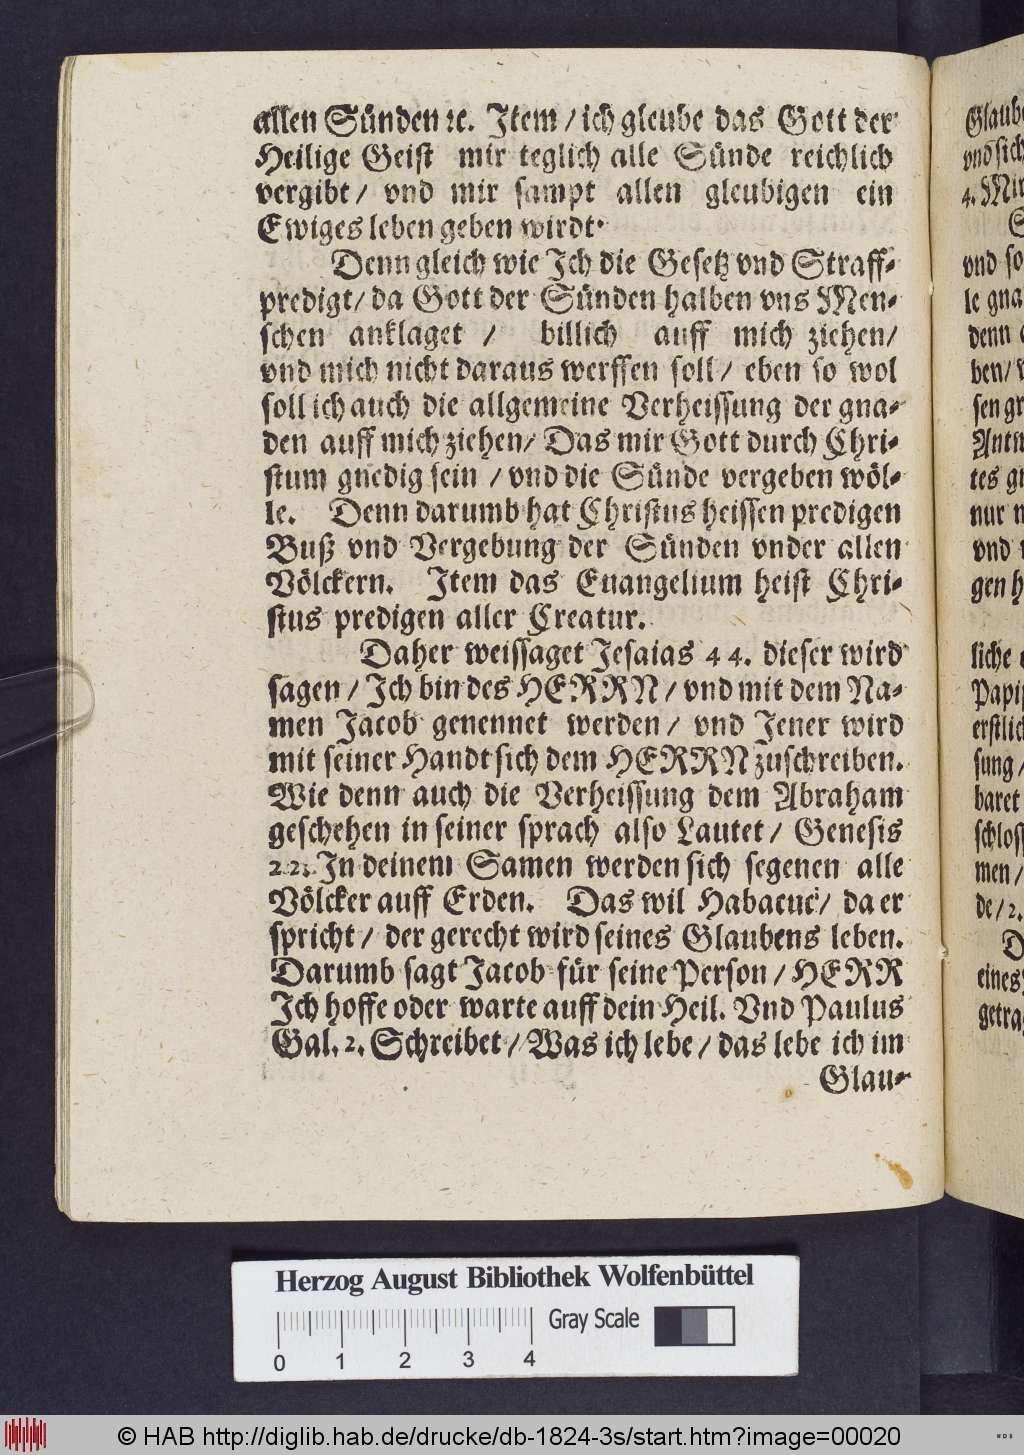 allen Sünden ꝛc. Item / ich gleube das Gott der
Heilige Geist mir teglich alle Sünde reichlich
vergibt / vnd mir sampt allen gleubigen ein
Ewiges leben geben wirdt.
Denn gleich wie Ich die Gesetz vnd Straff-
predigt / da Gott der Sünden halben vns Men-
schen anklaget / billich auff mich ziehen /
vnd mich nicht daraus werffen soll / eben so wol
soll ich auch die allgemeine Verheissung der gna-
den auff mich ziehen / Das mir Gott durch Chri-
stum gnedig sein / vnd die Sünde vergeben wöl-
le. Denn darumb hat Christus heissen predigen
Buß vnd Vergebung der Sünden vnder allen
Völckern. Item das Euangelium heist Chri-
stus predigen aller Creatur.
Daher weissaget Jesaias 44. dieser wird
sagen / Ich bin des HERRN / vnd mit dem Na-
men Jacob genennet werden / vnd Jener wird
mit seiner Handt sich dem HERRN zuschreiben.
Wie denn auch die Verheissung dem Abraham
geschehen in seiner sprach also Lautet / Genesis
22. In deinem Samen werden sich segenen alle
Völcker auff Erden. Das wil Habacuc / da er
spricht / der gerecht wird seines Glaubens leben.
Darumb sagt Jacob für seine Person / HERR
Ich hoffe oder warte auff dein Heil. Vnd Paulus
Gal. 2. Schreibet / Was ich lebe / das lebe ich im
Glau-
vnd sich
4. Mir
vnd so
le gna
denn
ben /
sen gr
Antw
tes gn
nur n
vnd
gen h
liche
Papi
erstlich
sung /
baret
schloss
men /
de / 2.
D
eines
getra
Herzog August Bibliothek Wolfenbüttel
Gray Scale
0 1 2 3 4
© HAB http://diglib.hab.de/drucke/db-1824-3s/start.htm?image=00020